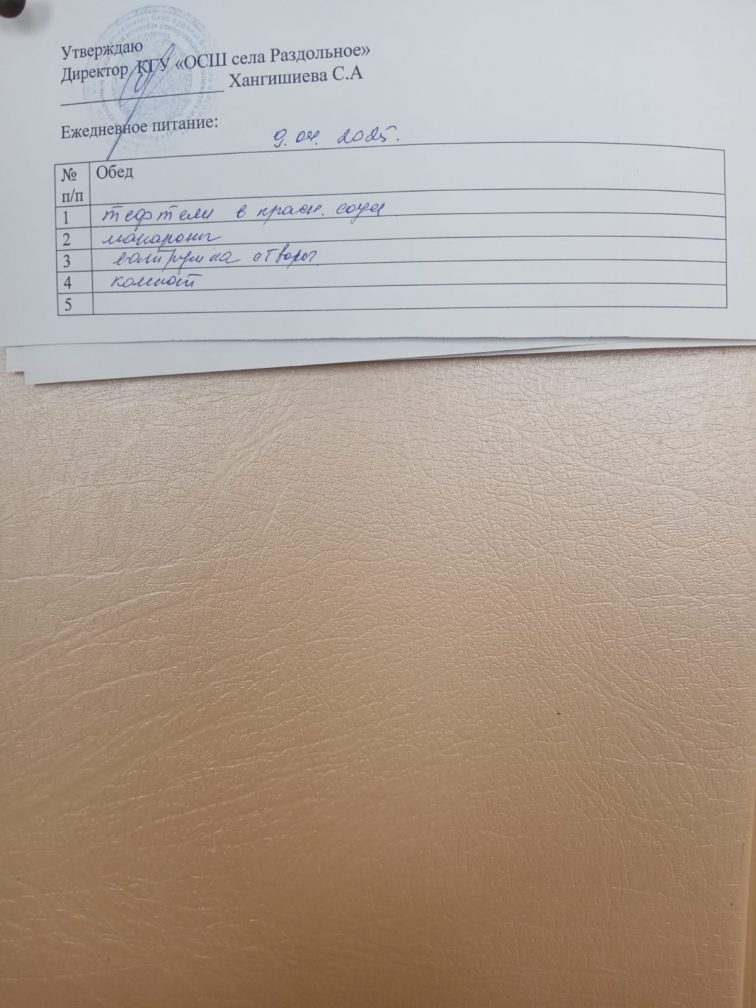 Утверждаю
Директор КГУ «ОСШ села Раздольное»
Хангишиева С.А
Ежедневное питание:
9.04. 2025.
№ п/п Обед
1 тефтели в красн. соусе
2 макароны
3 ватрушка творог
4 компот
5